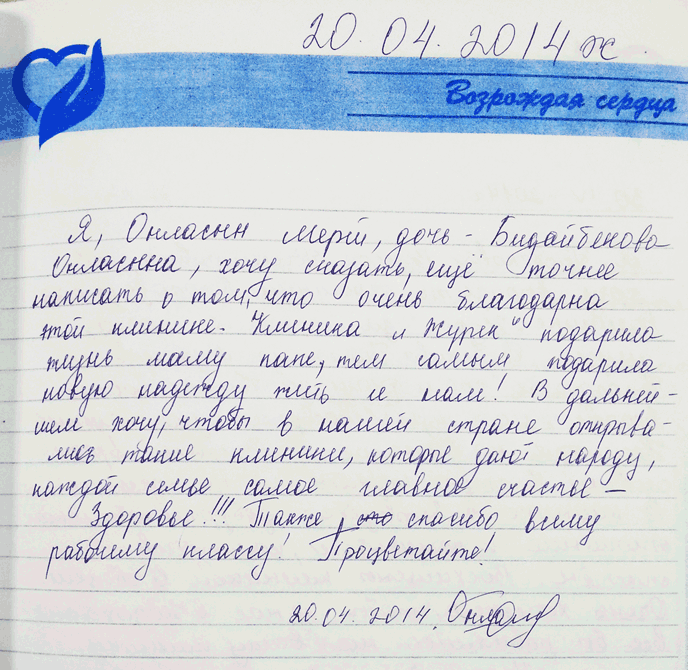 20.04.2014ж
Возрождая сердца
Я, Онласын Мерей, дочь - Бидайбекова
Онласына, хочу сказать, ещё точнее
написать о том, что очень благодарна
этой клинике. Клиника "Журек" подарила
жизнь моему папе, тем самым подарила
новую надежду жить и нам! В дальней-
шем хочу, чтобы в нашей стране открыва-
лись такие клиники, которые дают народу,
каждой семье самое главное счастье –
Здоровье!!! Также спасибо всему
рабочему классу! Процветайте!
20.04.2014.